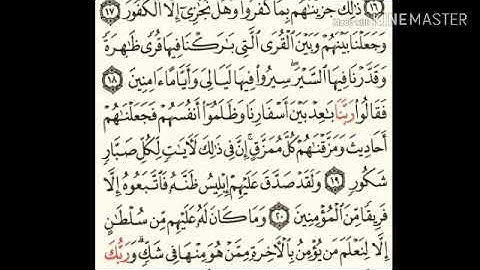 ١٦ ذَٰلِكَ جَزَيْنَٰهُم بِمَا كَفَرُوا۟ وَهَلْ نُجَٰزِىٓ إِلَّا ٱلْكَفُورَ ١٧
KINEMASTER
وَجَعَلْنَا بَيْنَهُمْ وَبَيْنَ ٱلْقُرَى ٱلَّتِى بَٰرَكْنَا فِيهَا قُرًى ظَٰهِرَةً
وَقَدَّرْنَا فِيهَا ٱلسَّيْرَ سِيرُوا۟ فِيهَا لَيَالِىَ وَأَيَّامًا ءَامِنِينَ ١٨
فَقَالُوا۟ رَبَّنَا بَٰعِدْ بَيْنَ أَسْفَارِنَا وَظَلَمُوٓا۟ أَنفُسَهُمْ فَجَعَلْنَٰهُمْ
أَحَادِيثَ وَمَزَّقْنَٰهُمْ كُلَّ مُمَزَّقٍ إِنَّ فِى ذَٰلِكَ لَءَايَٰتٍ لِّكُلِّ صَبَّارٍ
شَكُورٍ ١٩ وَلَقَدْ صَدَّقَ عَلَيْهِمْ إِبْلِيسُ ظَنَّهُۥ فَٱتَّبَعُوهُ إِلَّا
فَرِيقًا مِّنَ ٱلْمُؤْمِنِينَ ٢٠ وَمَا كَانَ لَهُۥ عَلَيْهِم مِّن سُلْطَٰنٍ
إِلَّا لِنَعْلَمَ مَن يُؤْمِنُ بِٱلْءَاخِرَةِ مِمَّنْ هُوَ مِنْهَا فِى شَكٍّ وَرَبُّكَ